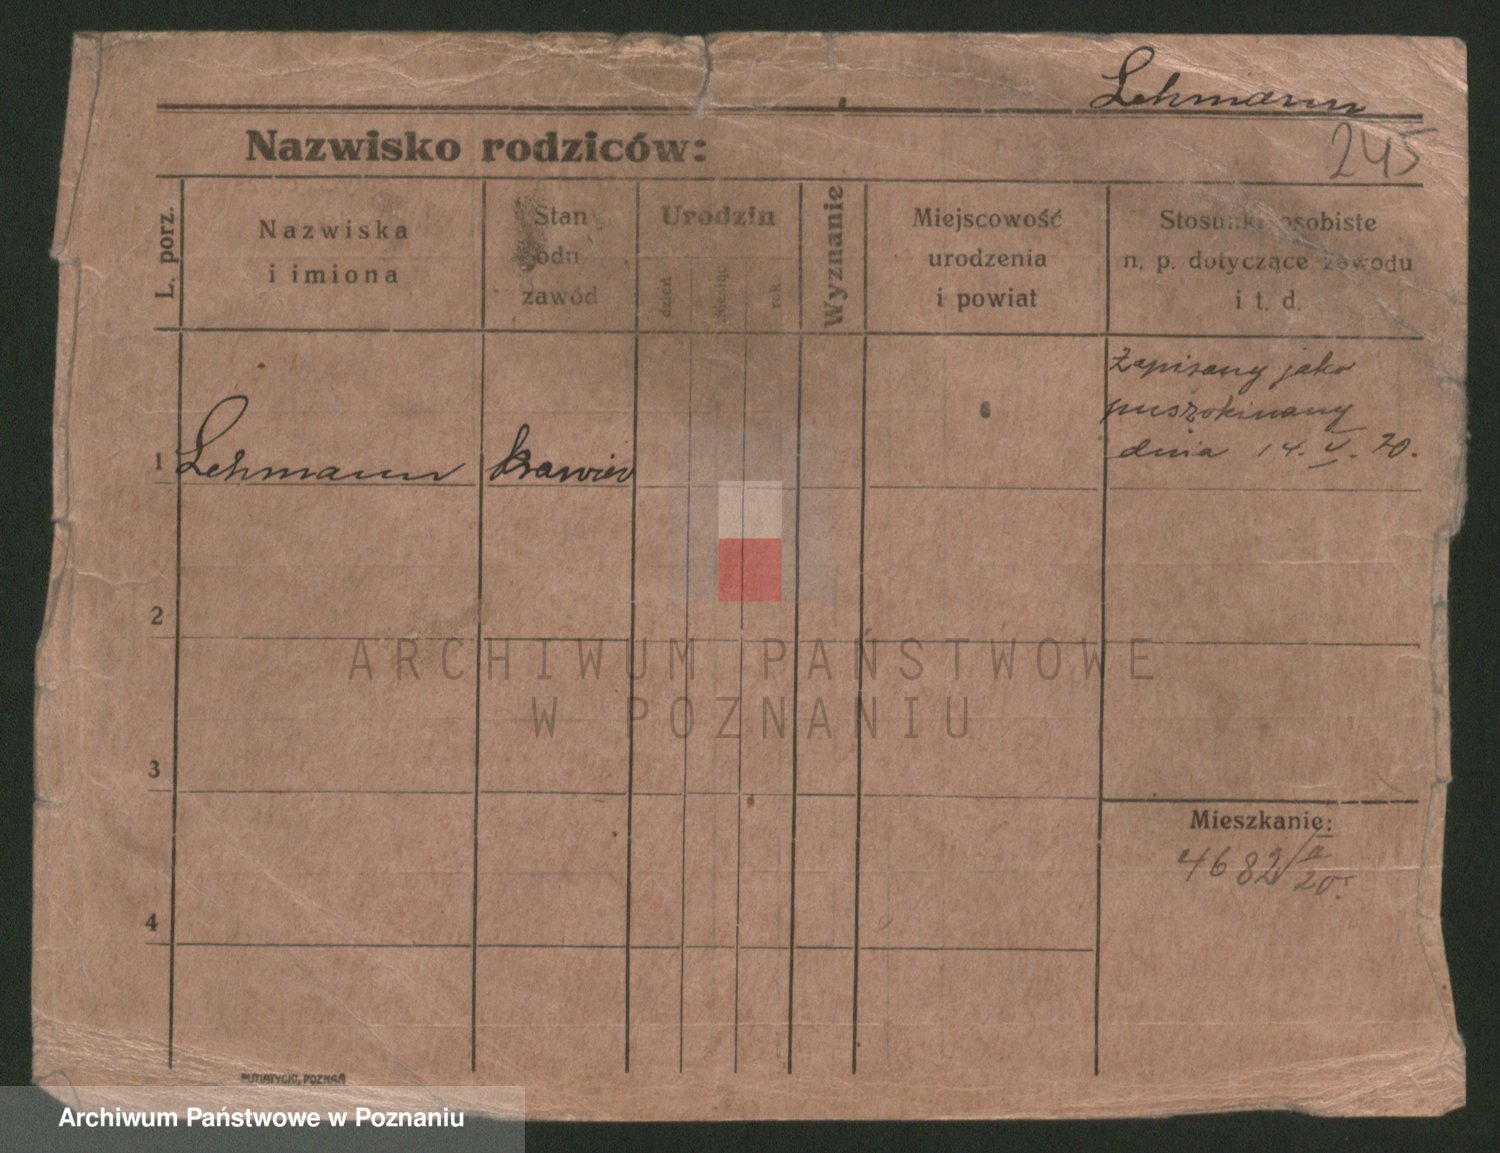 Lehmann
245
Nazwisko rodziców:
L. porz.
Nazwiska
i imiona
Stan
odn.
zawód
Urodzin
dzień
miesiąc
rok
Wyznanie
Miejscowość
urodzenia
i powiat
Stosunki osobiste
n. p. dotyczące zawodu
i t. d.
1
Lehmann
krawiec
Zapisany jako
puszokiwany
dnia 14. V. 20.
2
3
4
Mieszkanie:
4682/II
20.
PUTIATYCKI, POZNAŃ
ARCHIWUM PAŃSTWOWE
W POZNANIU
Archiwum Państwowe w Poznaniu